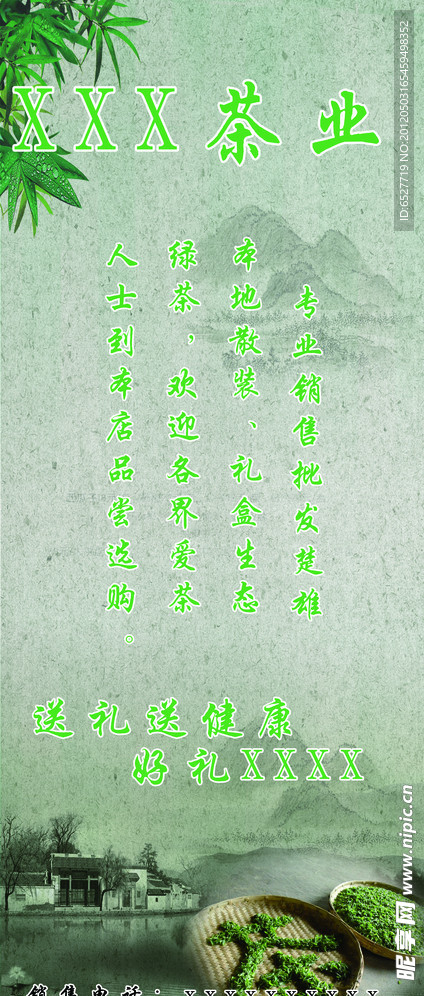 XXX茶业
专业销售批发楚雄
本地散装、礼盒生态
绿茶，欢迎各界爱茶
人士到本店品尝选购。
送礼送健康
好礼XXXX
茶
销售电话：XXXXXXXXXX
ID:6527719 NO:20120503165459498352
昵享网 www.nipic.cn